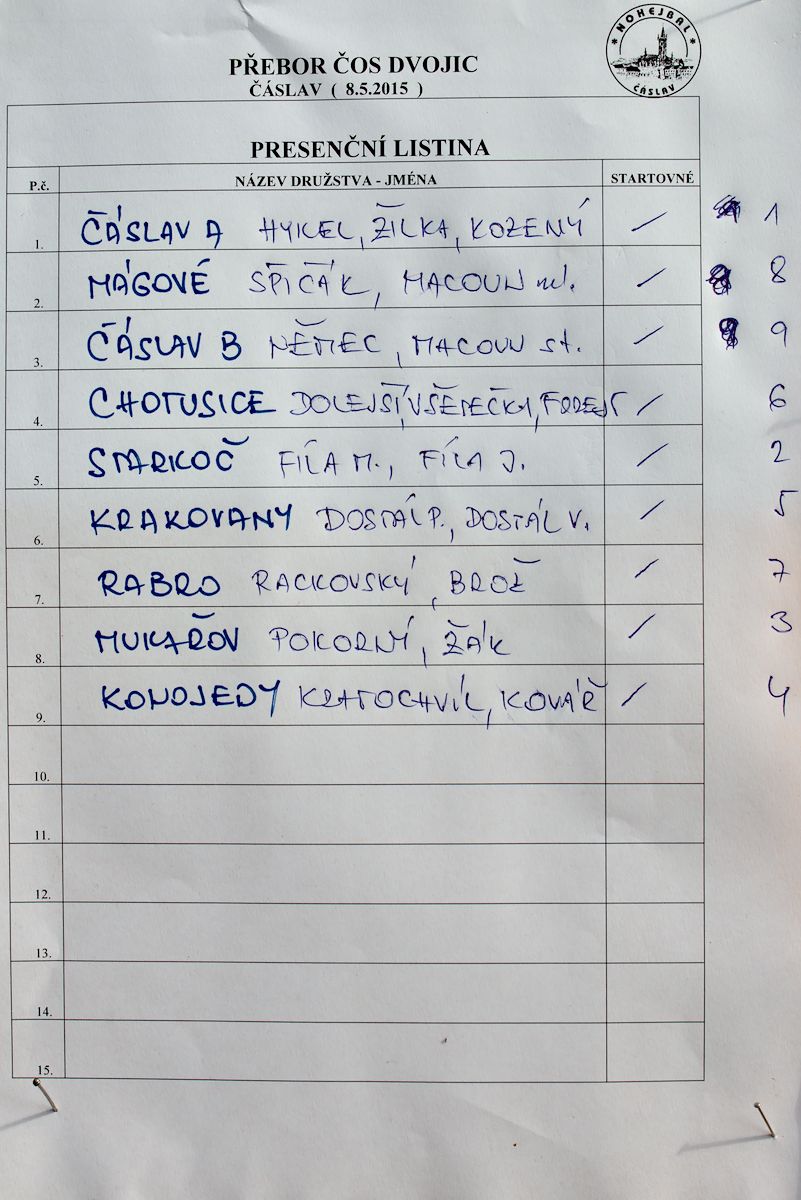 NOHEJBAL
ČÁSLAV
PŘEBOR ČOS DVOJIC
ČÁSLAV ( 8.5.2015 )
PRESENČNÍ LISTINA
P.č. NÁZEV DRUŽSTVA - JMÉNA STARTOVNÉ
1. ČÁSLAV A HYKEL, ŽILKA, KOZENÝ / 1
2. MÁGOVÉ ŠPIČÁK, MACOUN ml. / 8
3. ČÁSLAV B NĚMEC, MACOUN st. / 9
4. CHOTUSICE DOLEJŠÍ, VŠETEČKA, FOREJT / 6
5. STARKOČ FÍLA M., FÍLA J. / 2
6. KRAKOVANY DOSTÁL P., DOSTÁL V. / 5
7. RABRO RACKOVSKÝ, BROŽ / 7
8. MUKAŘOV POKORNÝ, ŽÁK / 3
9. KONOJEDY KRATOCHVÍL, KOVÁŘ / 4
10.
11.
12.
13.
14.
15.